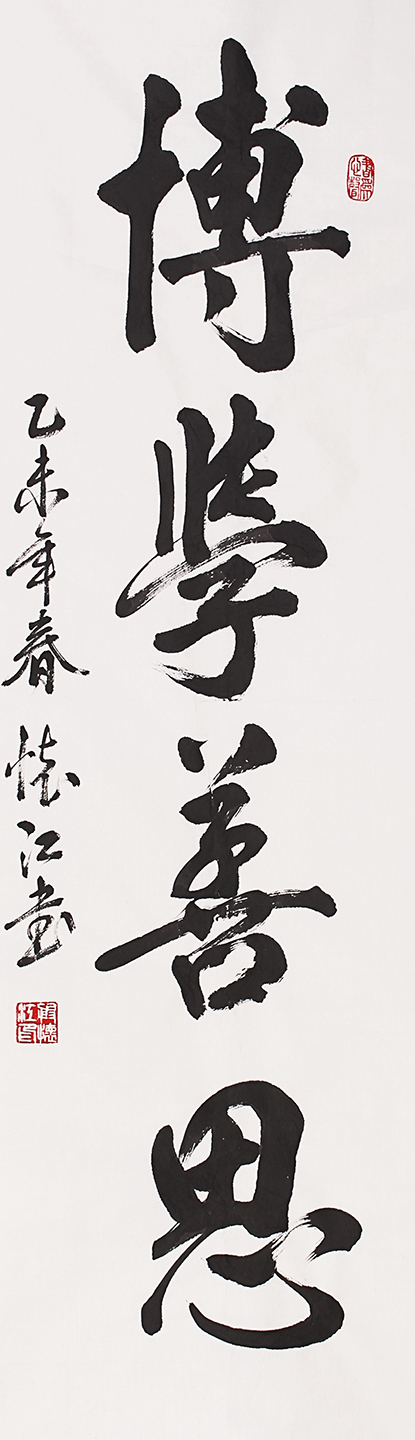 博學善思
乙未年春 懷江書